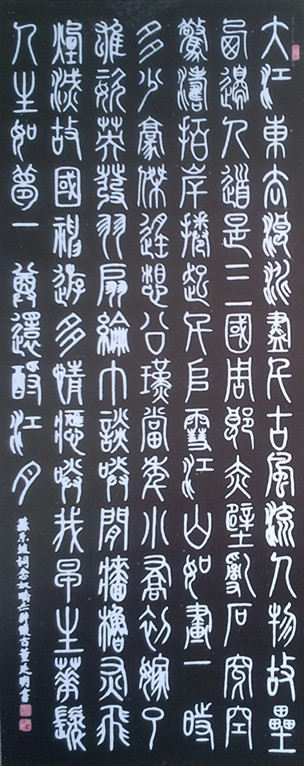 大江東去浪淘盡千古風流人物故壘
西邊人道是三國周郎赤壁亂石穿空
驚濤拍岸捲起千堆雪江山如畫一時
多少豪傑遥想公瑾當年小喬初嫁了
雄姿英發羽扇綸巾談笑間檣櫓灰飛
煙滅故國神遊多情應笑我早生華髮
人生如夢一尊還酹江月
蘇東坡詞念奴嬌赤壁懷古